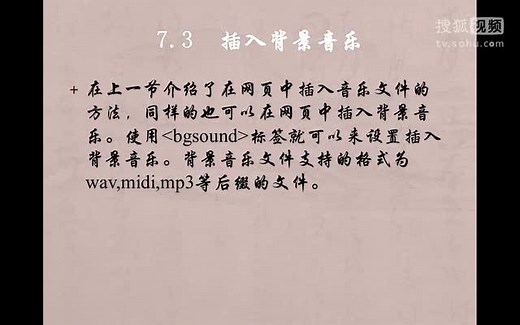 搜狐视频
tv.sohu.com
7.3 插入背景音乐
+ 在上一节介绍了在网页中插入音乐文件的
方法，同样的也可以在网页中插入背景音
乐。使用<bgsound>标签就可以来设置插入
背景音乐。背景音乐文件支持的格式为
wav,midi,mp3等后缀的文件。